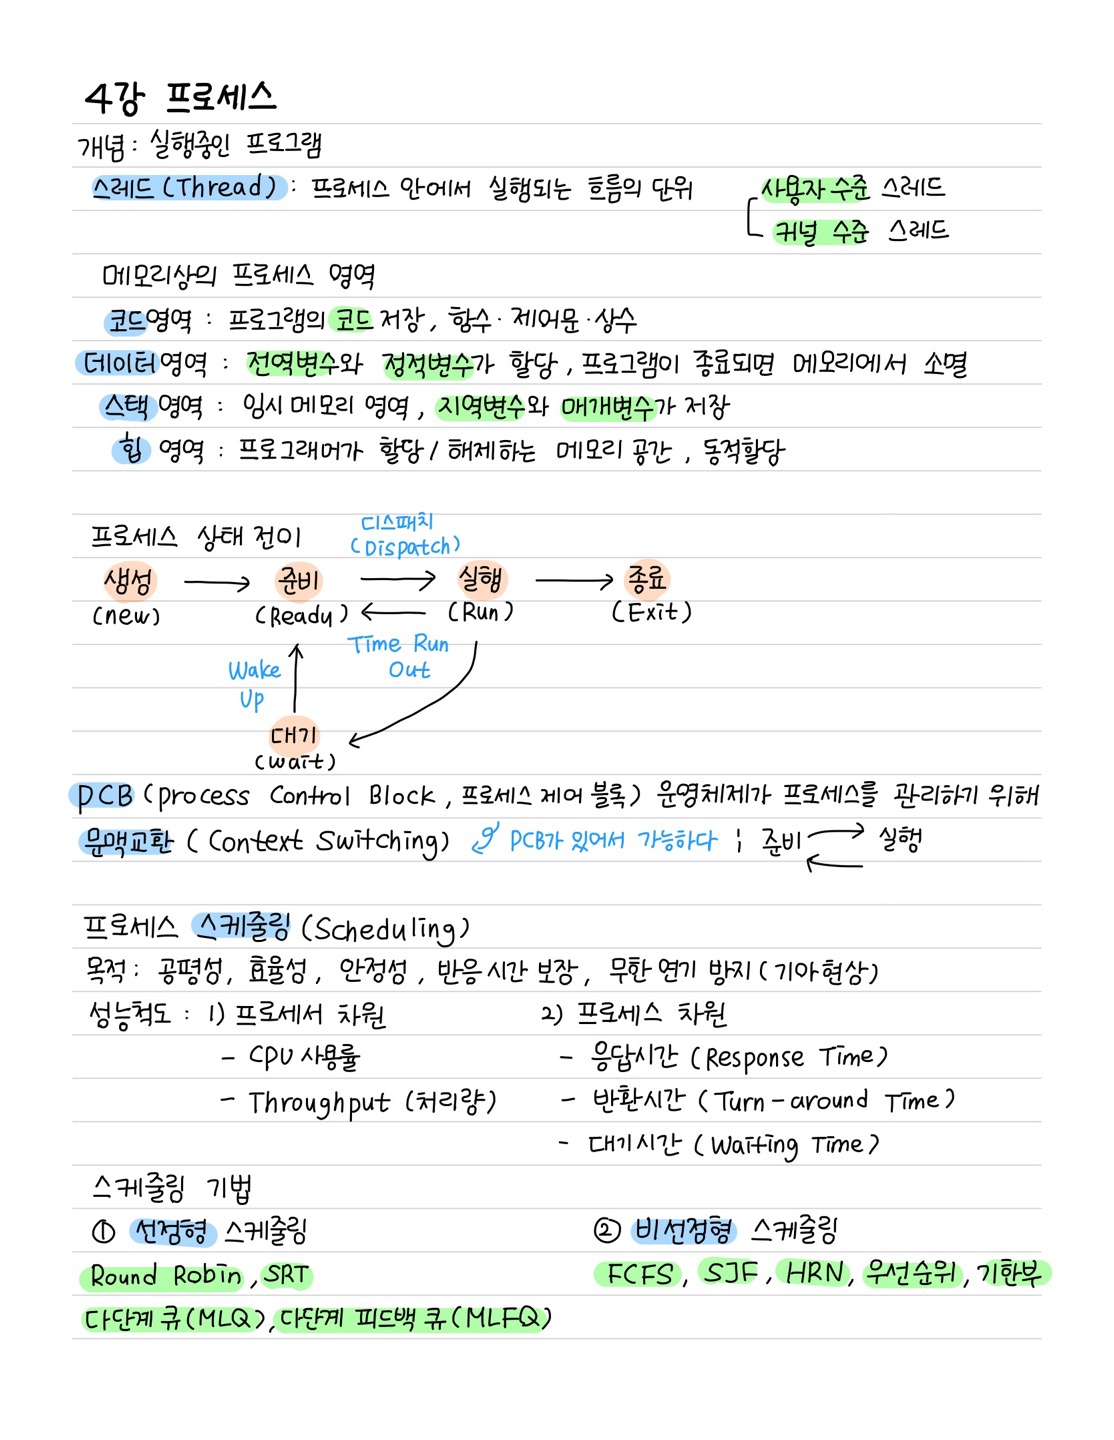 4강 프로세스
개념 : 실행중인 프로그램
스레드 (Thread) : 프로세스 안에서 실행되는 흐름의 단위 사용자 수준 스레드
커널 수준 스레드
메모리상의 프로세스 영역
코드영역 : 프로그램의 코드 저장, 함수·제어문·상수
데이터영역 : 전역변수와 정적변수가 할당, 프로그램이 종료되면 메모리에서 소멸
스택 영역 : 임시 메모리 영역, 지역변수와 매개변수가 저장
힙 영역 : 프로그래머가 할당/해제하는 메모리 공간, 동적할당
프로세스 상태 전이
디스패치
(Dispatch)
생성 → 준비 → 실행 → 종료
(new) (Ready) ← (Run) (Exit)
Time Run
Out
Wake
Up
대기
(wait)
PCB (process Control Block, 프로세스 제어 블록) 운영체제가 프로세스를 관리하기 위해
문맥교환 (Context Switching) PCB가 있어서 가능하다 ; 준비 실행
프로세스 스케줄링 (Scheduling)
목적 : 공평성, 효율성, 안정성, 반응 시간 보장, 무한 연기 방지 (기아현상)
성능척도 : 1) 프로세서 차원 2) 프로세스 차원
- CPU 사용률 - 응답시간 (Response Time)
- Throughput (처리량) - 반환시간 (Turn-around Time)
- 대기시간 (Waiting Time)
스케줄링 기법
① 선점형 스케줄링 ② 비선점형 스케줄링
Round Robin, SRT FCFS, SJF, HRN, 우선순위, 기한부
다단계 큐(MLQ), 다단계 피드백 큐(MLFQ)